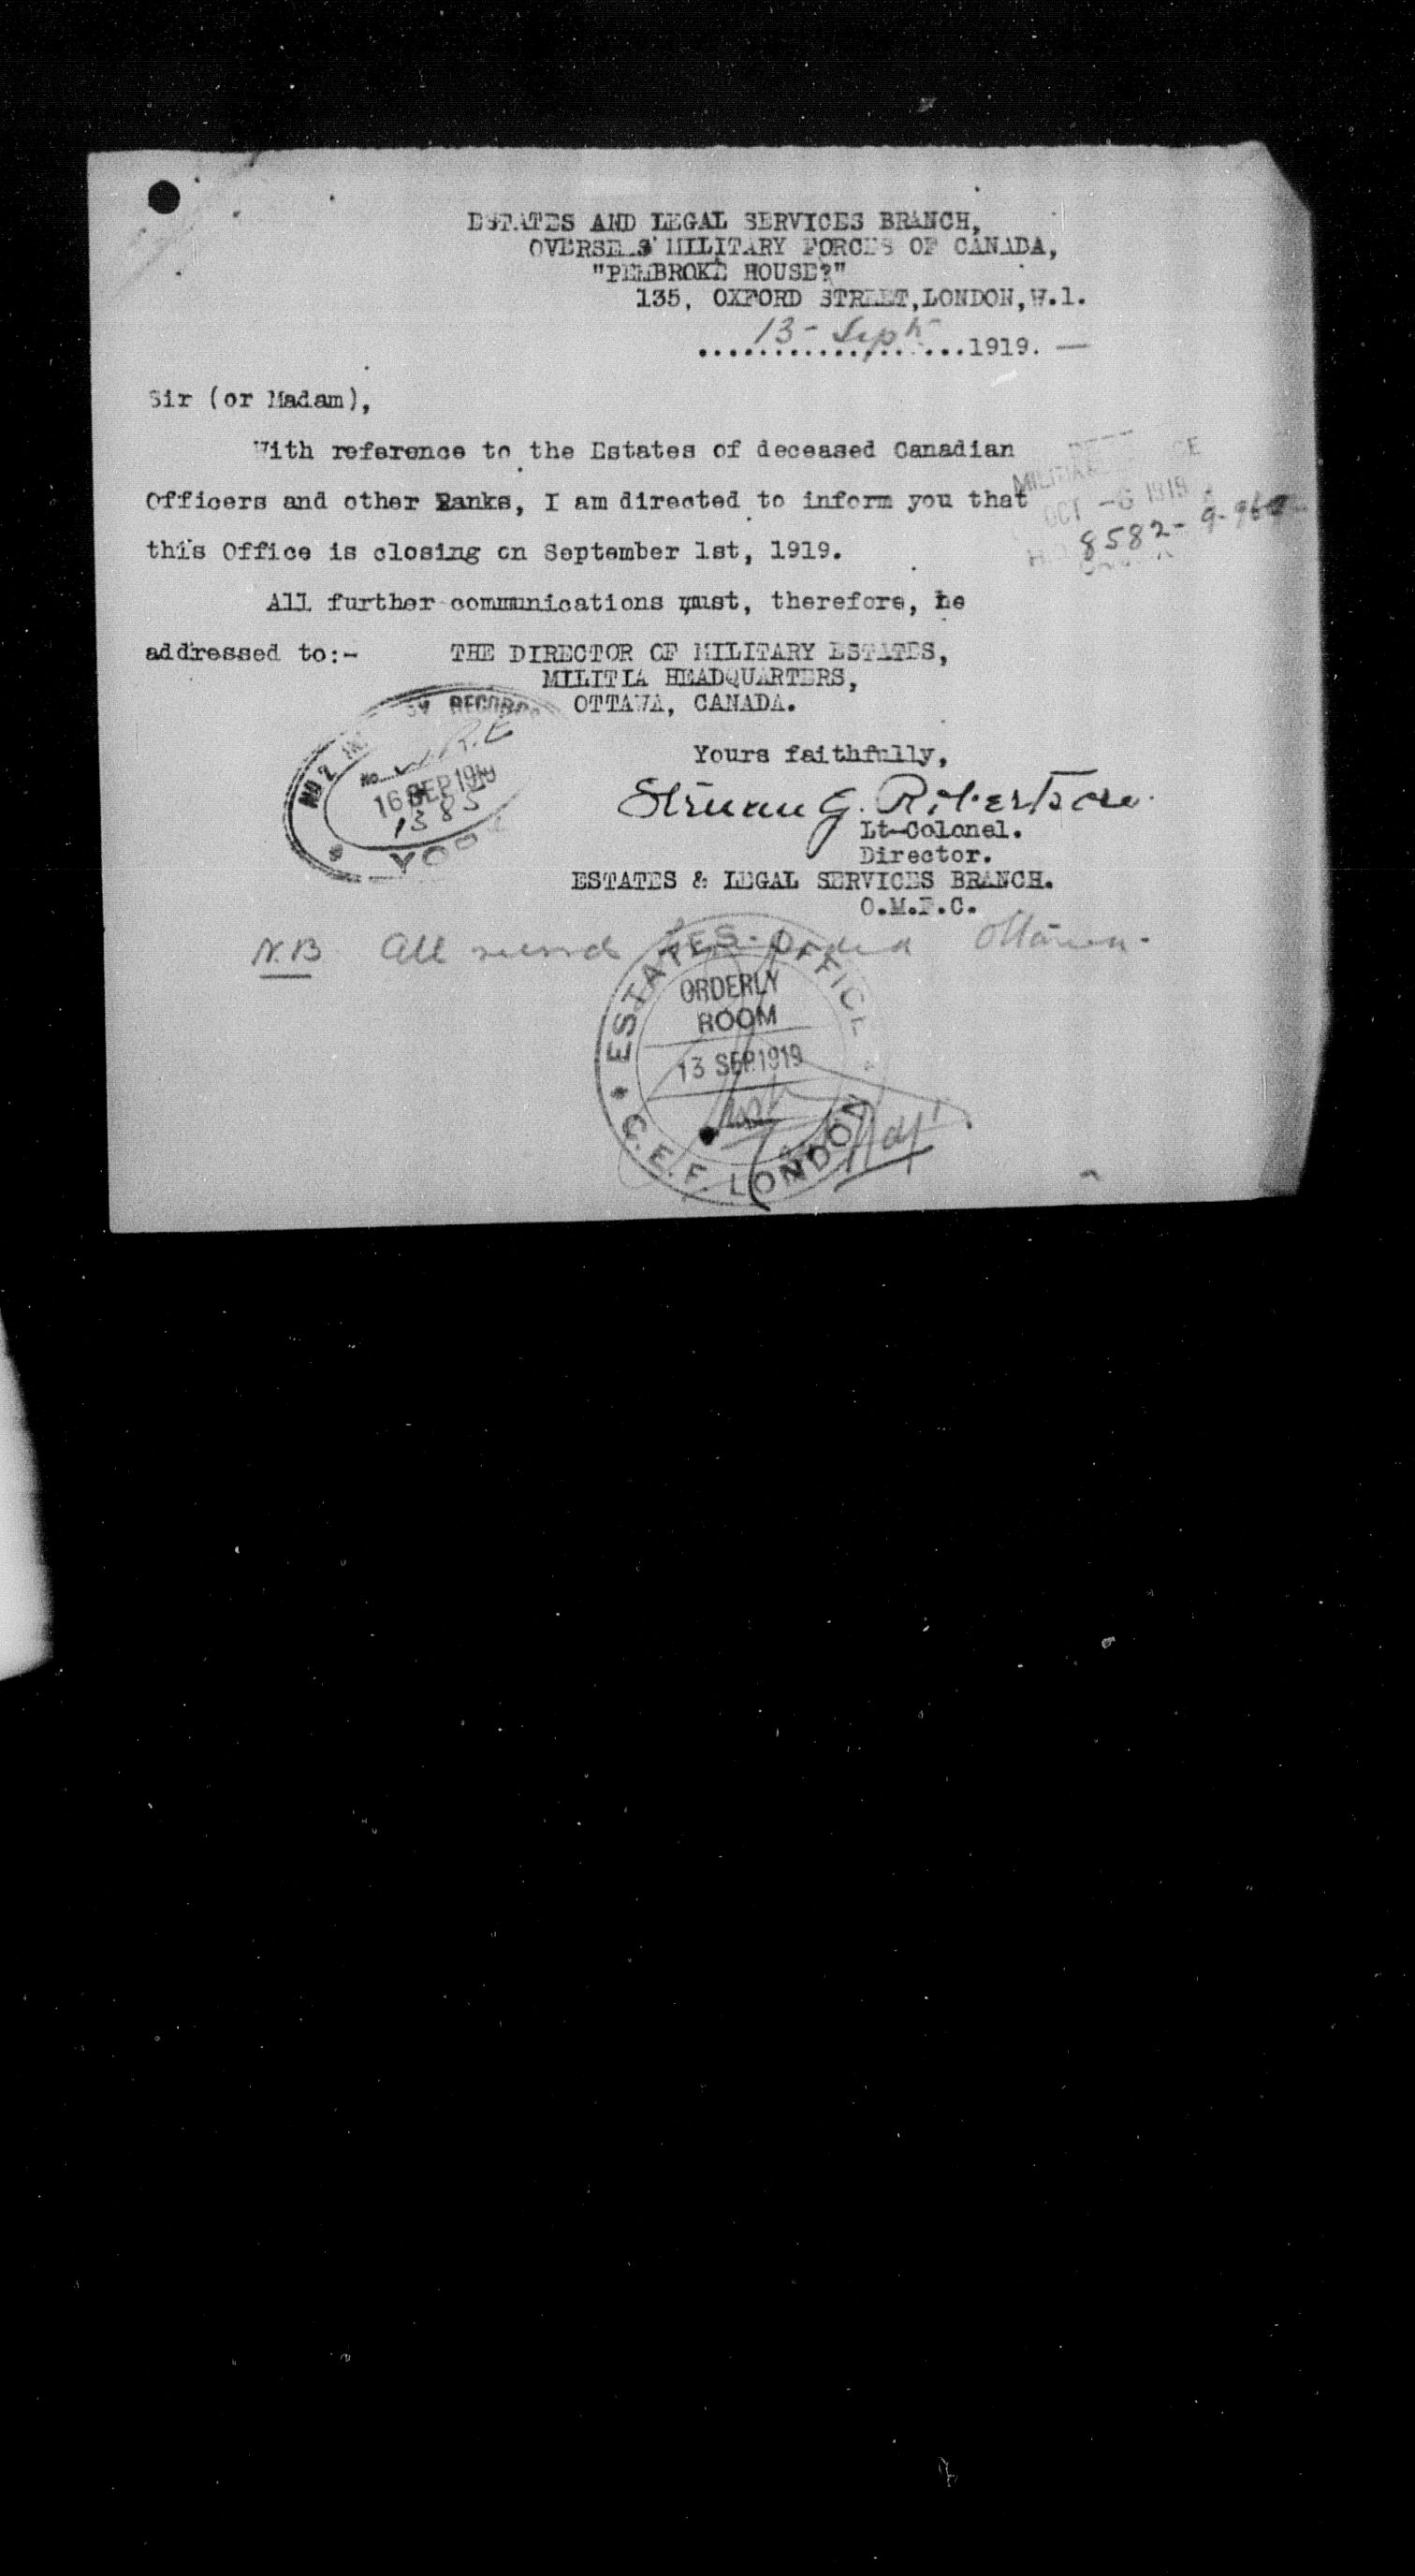 ESTATES AND LEGAL SERVICES BRANCH,
OVERSEAS MILITARY FORCES OF CANADA,
"PEMBROKE HOUSE?"
135, OXFORD STREET, LONDON, W.1.
13 - Sept 1919. —
Sir (or Madam),
With reference to the Estates of deceased Canadian
Officers and other Ranks, I am directed to inform you that
this Office is closing on September 1st, 1919.
MILITIA
OCT -6 1919
8582-9-
All further communications must, therefore, be
addressed to:- THE DIRECTOR OF MILITARY ESTATES,
MILITIA HEADQUARTERS,
OTTAWA, CANADA.
NO 2 RECORD
No
16 SEP 1919
1385
Yours faithfully,
Struan G. Robertson.
Lt-Colonel.
Director.
ESTATES & LEGAL SERVICES BRANCH.
O.M.F.C.
N.B All Ottawa.
ESTATES OFFICE
ORDERLY
ROOM
13 SEP. 1919
C.E.F. LONDON